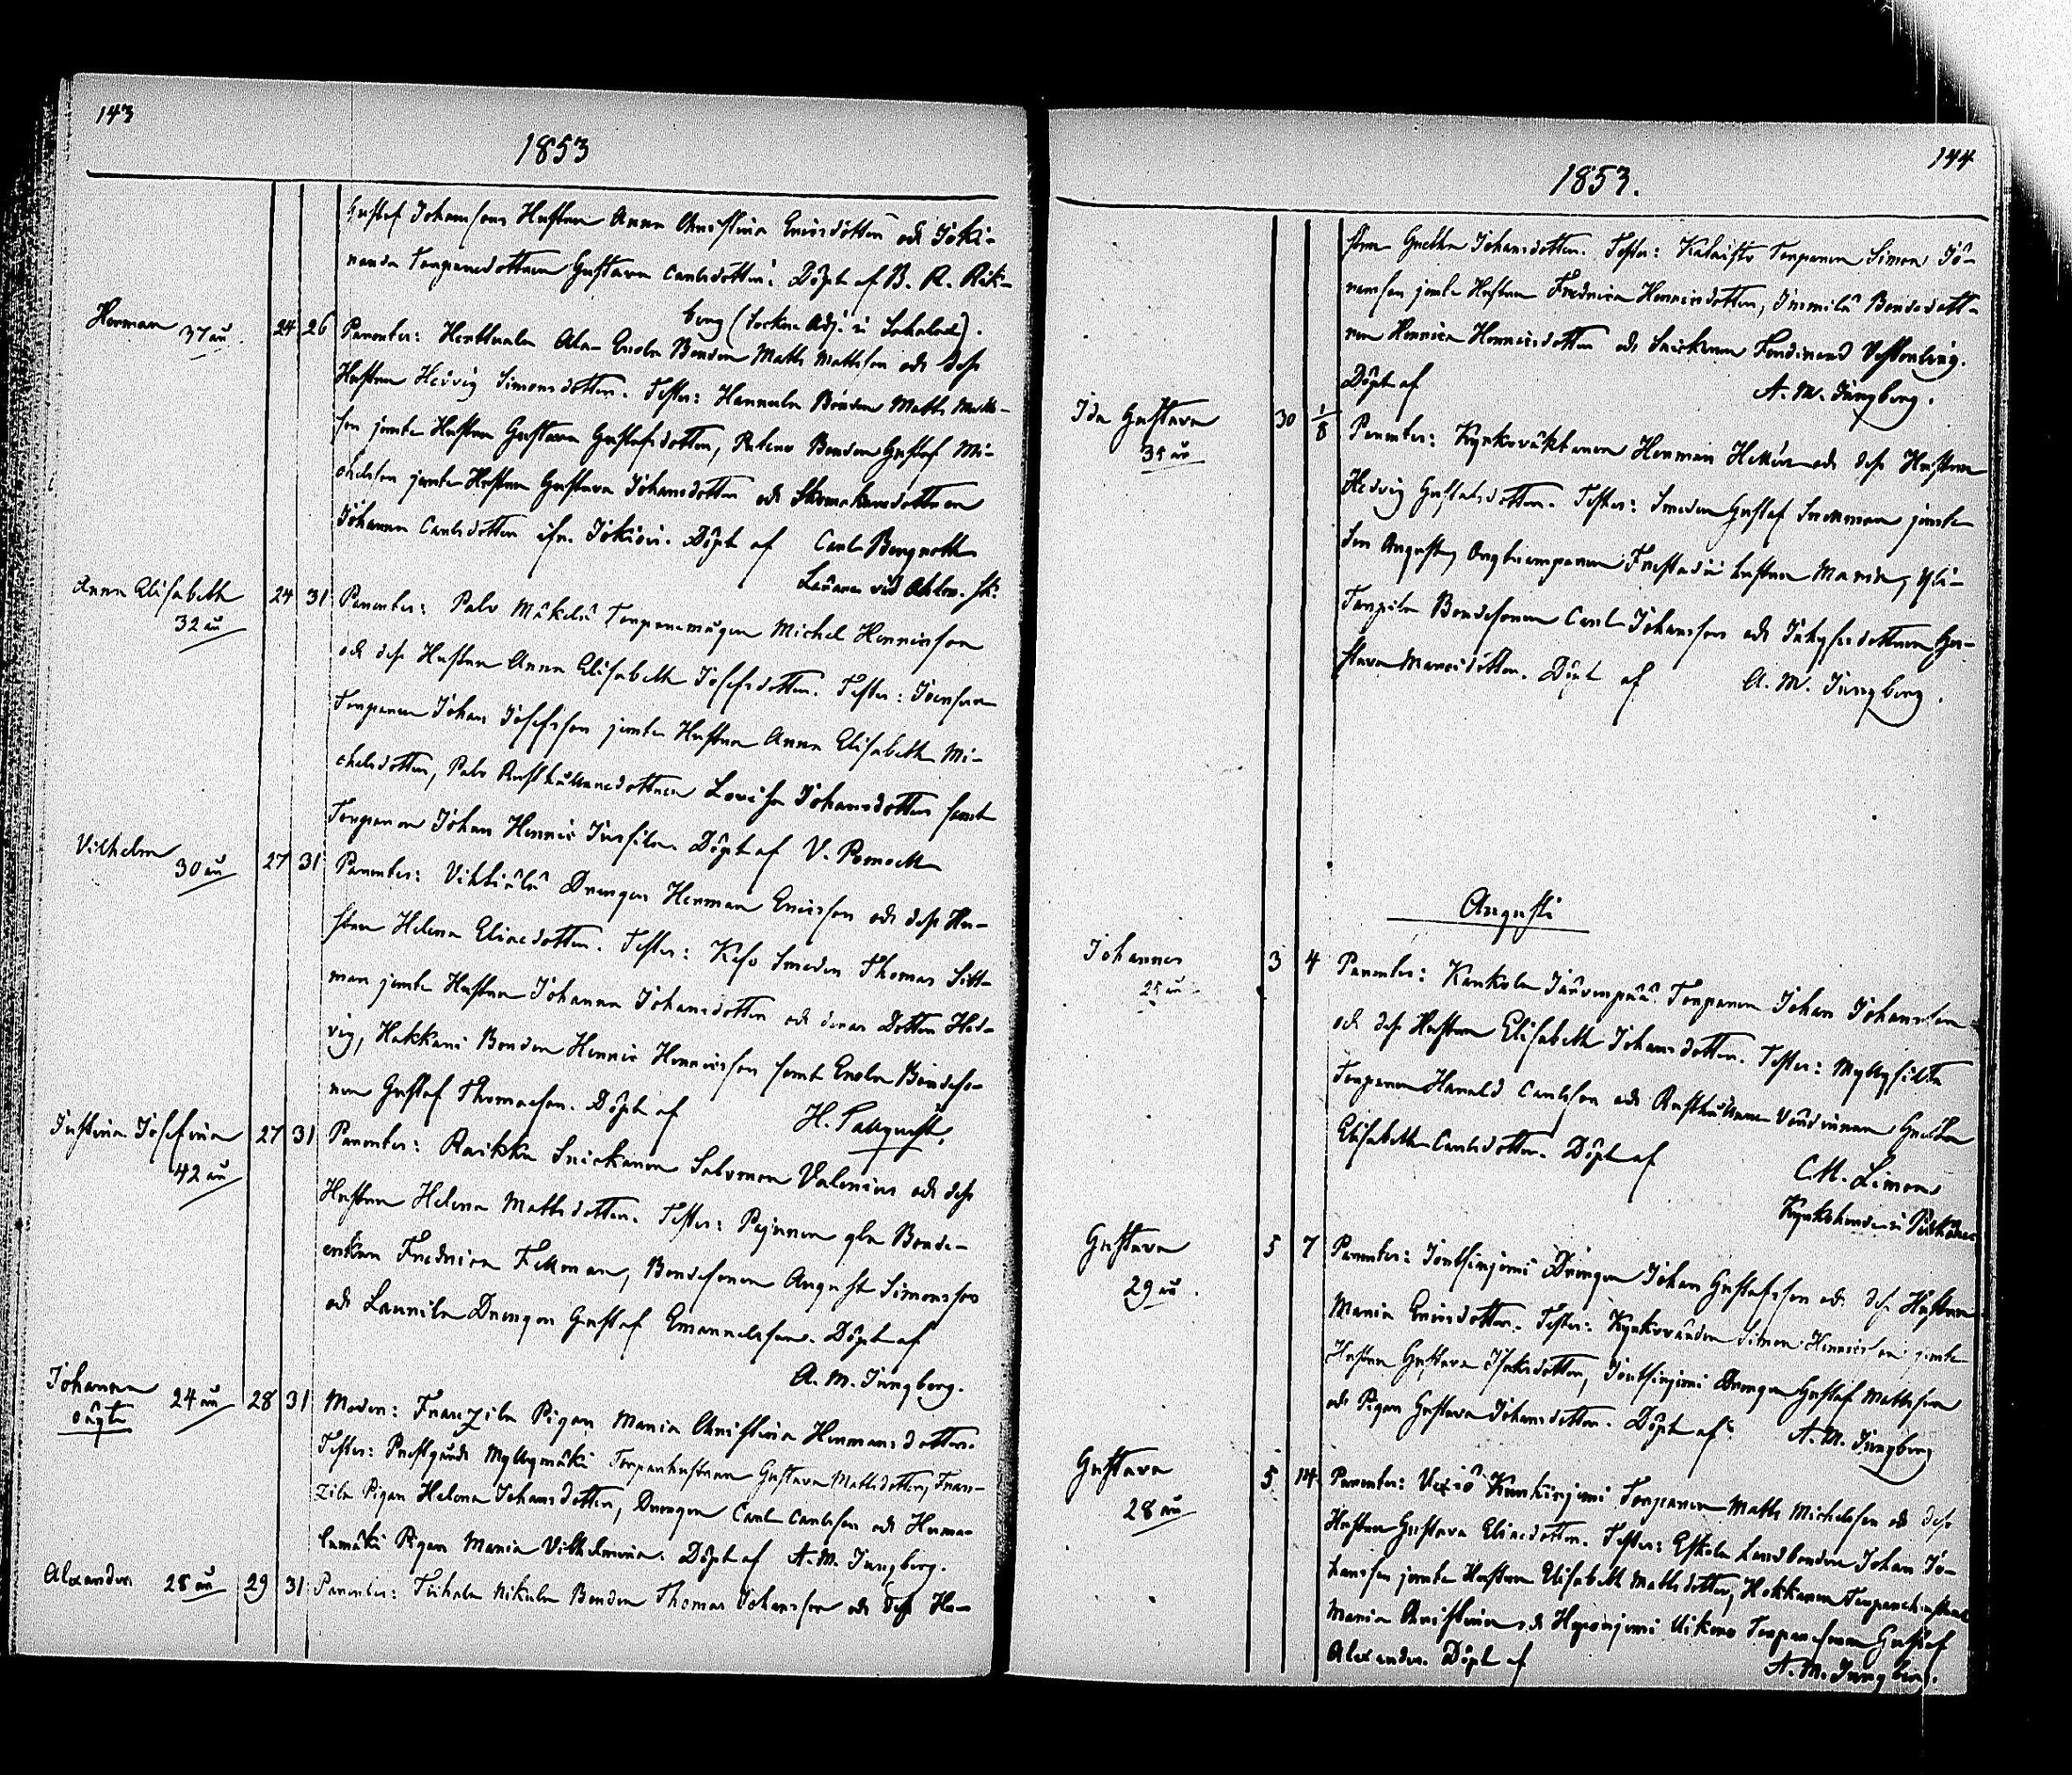 143
1853
Gustaf Johanssons Hustru Anna Christina Ericsdotter och Joki-
Torparedottren Gustava Carlsdotter. Döpt af B. R. Rik-
berg (Sockne Adj. i Lokalax).
Herman 37 år 24 26 Parentes: Herttuala Ala- Erola Bonden Matts Mattsson och dess
Hustru Hedvig Simonsdotter. Testes: Hannula Bonden Matts Matts-
son jemte Hustru Gustava Gustafsdotter, Bonden Gustaf Mi-
chelsson jemte Hustru Gustava Johansdotter och Skomakaredottren
Johanna Carlsdotter ifr. Jokiois. Döpt af Carl Bergroth
Lärare vid
Anna Elisabeth 32 år 24 31 Parentes: Palo Mäkelä Torparemågen Michel Henricsson
och dess Hustru Anna Elisabeth Josefsdotter. Testes: Joensuu
Torparen Johan Josefsson jemte Hustru Anna Elisabeth Mi-
chelsdotter, Palo Rusthållaredottren Lovisa Johansdotter samt
Torparen Johan Henric Jussila. Döpt af V. Pomoell
Vilhelm 30 år 27 31 Parentes: Drengen Herman Ericsson och dess Hu-
stru Helena Eliaedotter. Testes: Smeden Thomas Litt-
man jemte Hustru Johanna Johansdotter och deras Dotter Hed-
vig, Hakkani Bonden Henric Henricsson samt Erola Bondeso-
nen Gustaf Thomasson. Döpt af H. Pallquist.
Justina Josefina 42 år 27 31 Parentes: Raikka Snickaren Salomon Valenius och dess
Hustru Helena Mattsdotter. Testes: Bonde-
enkan Fredrica Fellman, Bondesonen August Simonsson
och Launila Drengen Gustaf Emanuelsson. Döpt af
A. M. Ljungberg.
Johanna oägta 24 år 28 31 Modern: Franzila Pigan Maria Christina Hermansdotter.
Testes: Prestgårds Myllymäki Torparhustrun Gustava Mattsdotter, Fran-
zila Pigan Helena Johansdotter, Drengen Carl Carlsson och Huma-
lamäki Pigan Maria Vilhelmina. Döpt af A. M. Ljungberg.
Alexander 28 år 29 31 Parentes: Tuikala Nikula Bonden Thomas Johansson och dess Hu-
144
1853.
stru Gretha Johansdotter. Testes: Torparen Simon Jo-
hansson jemte Hustru Fredrica Henricsdotter, Immilä Bondedott-
ren Henrica Henricsdotter och Snickaren Ferdinand Vesterling.
Döpt af A. M. Ljungberg.
Ida Gustava 35 år 30 1/8 Parentes: Kyrkoväktaren Herman Hellén och dess Hustru
Hedvig Gustafsdotter. Testes: Smeden Gustaf jemte
Son August, Hustru Maria, Yli-
Bondesonen Carl Johansson och Inhysesdottren Gu-
stava Marcisdotter. Döpt af A. M. Ljungberg.
Augusti
Johannes 25 år 3 4 Parentes: Kankola Järvenpää Torparen Johan Johansson
och dess Hustru Elisabeth Johansdotter. Testes: Myllysilta
Torparen Harald Carlsson och Rusthållare Värdinnan Gretha
Elisabeth Carlsdotter. Döpt af C. M. Limon
Kyrkoherde i
Gustava 29 år 5 7 Parentes: Drengen Johan Gustafsson och dess Hustru
Maria Ericsdotter. Testes: Kyrkovärden Simon Henricsson jemte
Hustru Gustava Isaksdotter, Drengen Gustaf Mattsson
och Pigan Gustava Johansdotter. Döpt af A. M. Ljungberg
Gustava 28 år 5 14 Parentes: Torparen Matts Michelsson och dess
Hustru Gustava Eliaedotter. Testes: Eskola Landbonden Johan Jo-
hansson jemte Hustru Elisabeth Mattsdotter, Torparehustrun
Maria Christina och Torparesonen Gustaf
Alexander. Döpt af A. M. Ljungberg.